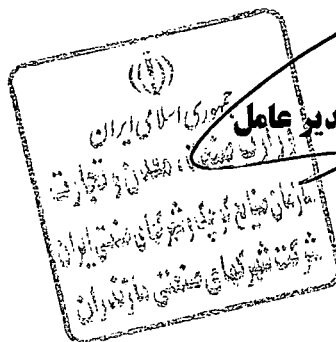 جمهوری اسلامی ایران
مدیر عامل
وزارت صنعت، معدن و تجارت
سازمان صنایع کوچک و شهرکهای صنعتی ایران
شرکت شهرکهای صنعتی مازندران